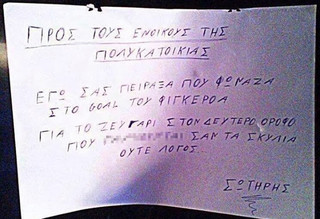 ΠΡΟΣ ΤΟΥΣ ΕΝΟΙΚΟΥΣ ΤΗΣ
ΠΟΛΥΚΑΤΟΙΚΙΑΣ
ΕΓΩ ΣΑΣ ΠΕΙΡΑΞΑ ΠΟΥ ΦΩΝΑΖΑ
ΣΤΟ GOAL ΤΟΥ ΦΙΓΚΕΡΟΑ
ΓΙΑ ΤΟ ΖΕΥΓΑΡΙ ΣΤΟΝ ΔΕΥΤΕΡΟ ΟΡΟΦΟ
ΠΟΥ ΣΑΝ ΤΑ ΣΚΥΛΙΑ
ΟΥΤΕ ΛΟΓΟΣ
ΣΩΤΗΡΗΣ